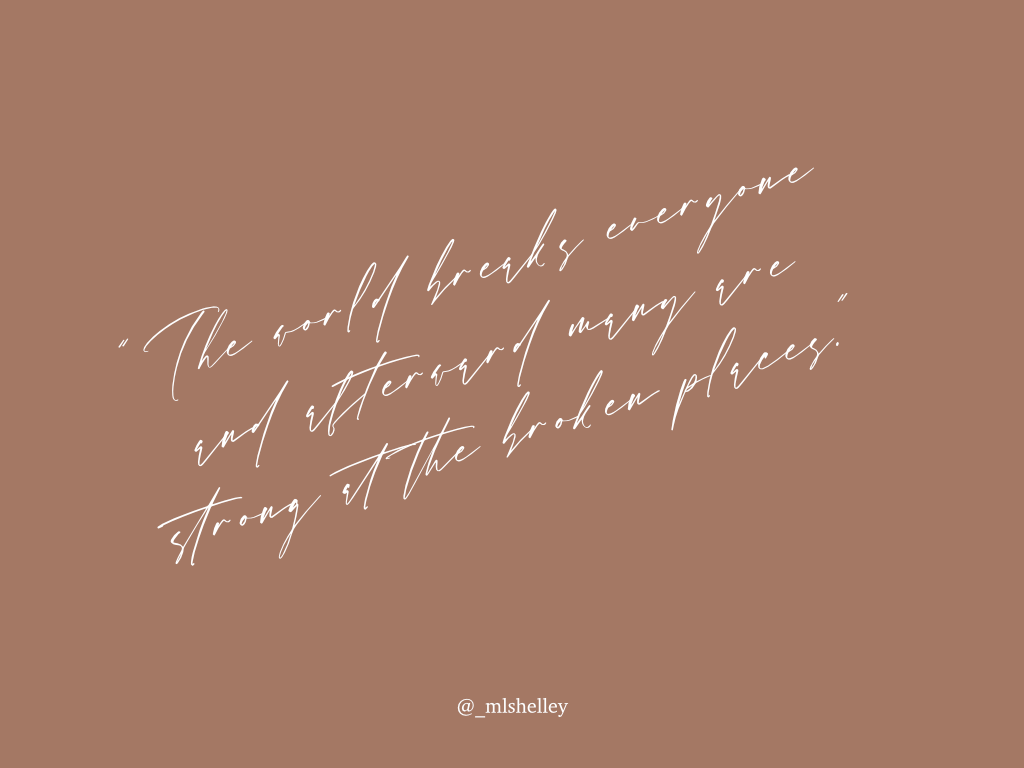 "The world breaks everyone
and afterward many are
strong at the broken places."
@_mlshelley